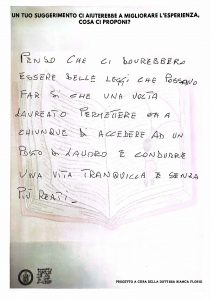 UN TUO SUGGERIMENTO CI AIUTEREBBE A MIGLIORARE L'ESPERIENZA,
COSA CI PROPONI?
PENSO CHE CI DOVREBBERO
ESSERE DELLE LEGGI CHE POSSANO
FAR SÌ CHE UNA VOLTA
LAUREATO PERMETTERE A
CHIUNQUE DI ACCEDERE AD UN
POSTO DI LAVORO E CONDURRE
UNA VITA TRANQUILLA E SENZA
PIÙ REATI.
PROGETTO A CURA DELLA DOTT.SSA BIANCA FLORIO